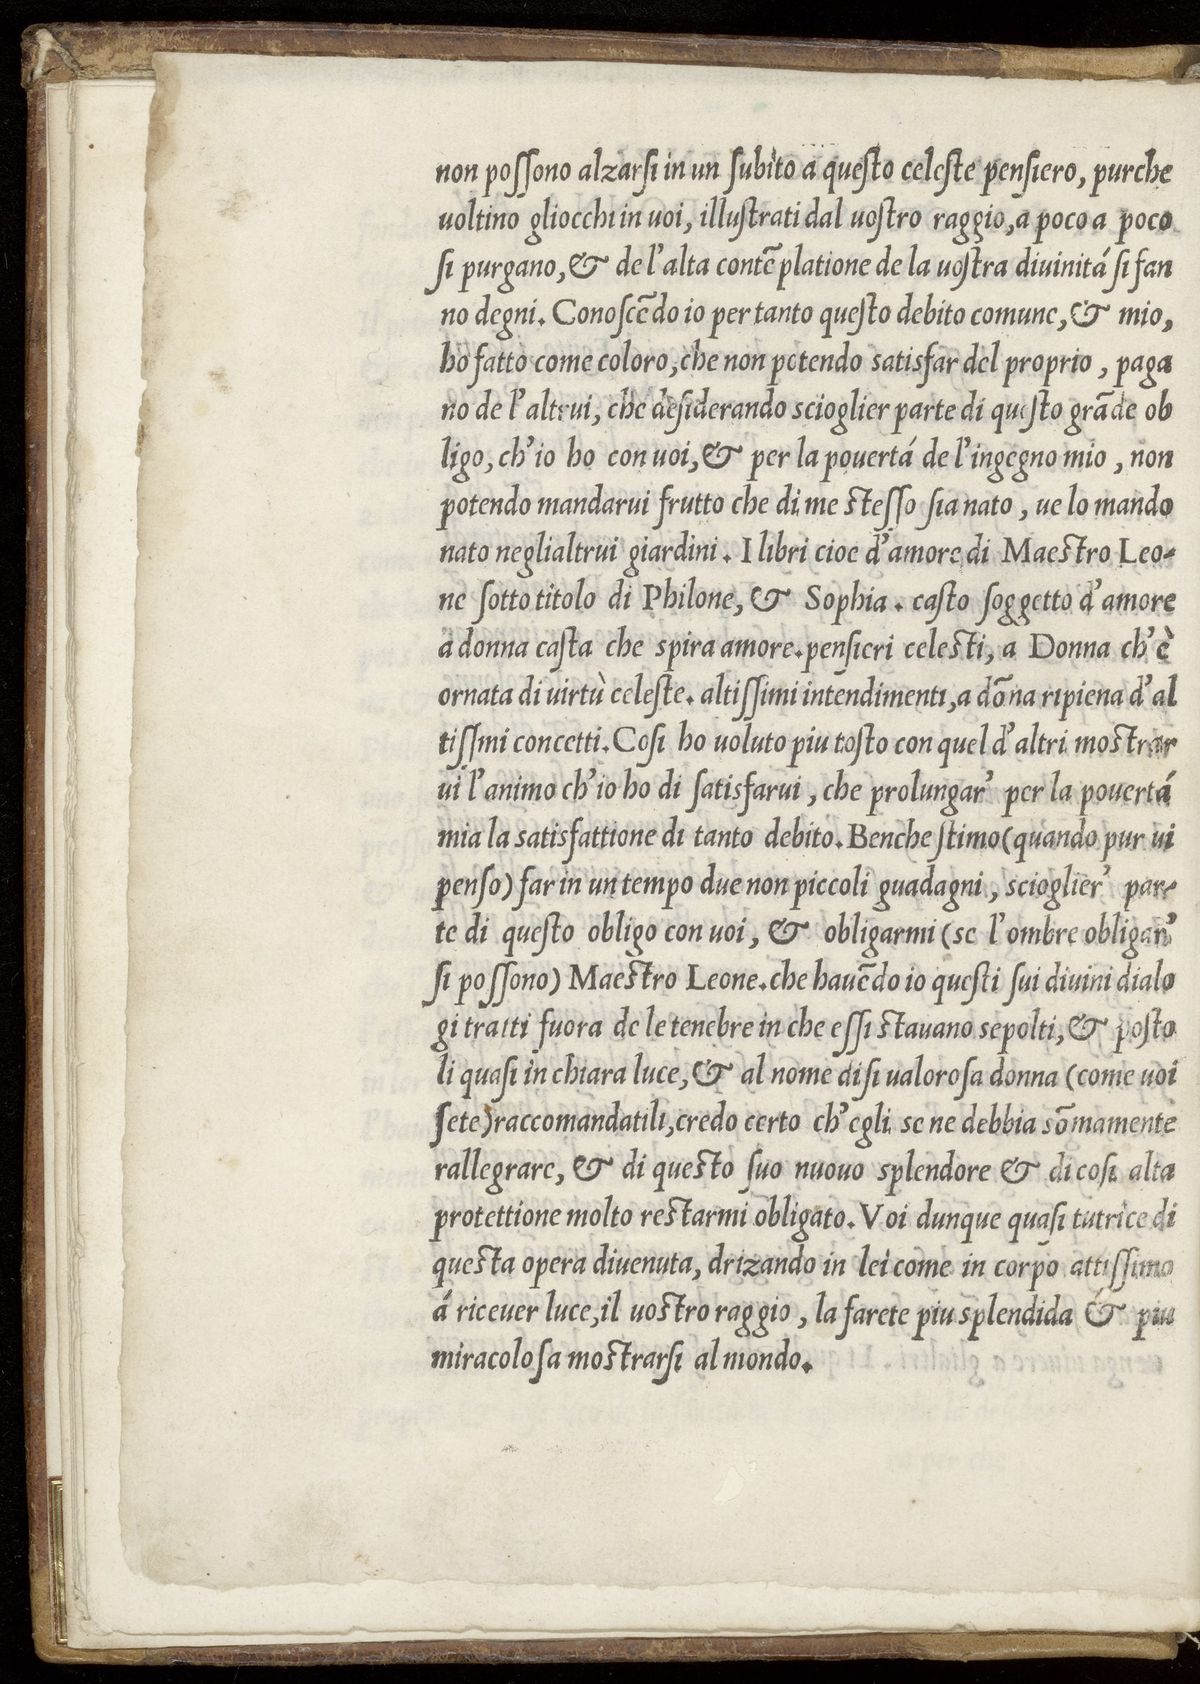 non poſſono alzarſi in un ſubito a queſto celeſte penſiero, purche
uoltino gliocchi in uoi, illuſtrati dal uoſtro raggio, a poco a poco
ſi purgano, & de l'alta contēplatione de la uoſtra diuinitá ſi fan
no degni. Conoſcēdo io per tanto queſto debito comune, & mio,
ho fatto come coloro, che non potendo satisfar del proprio, paga
no de l'altrui, che deſiderando scioglier parte di queſto grāde ob
ligo, ch'io ho con uoi, & per la pouertá de l'ingegno mio, non
potendo mandarui frutto che di me steſſo ſia nato, ue lo mando
nato neglialtrui giardini. I libri cioe d'amore di Maestro Leo-
ne ſotto titolo di Philone, & Sophia. caſto ſoggetto d'amore
a donna caſta che spira amore. penſieri celesti, a Donna ch'è
ornata di uirtù celeſte. altiſſimi intendimenti, a dōna ripiena d'al
tiſſmi concetti. Coſi ho uoluto piu toſto con quel d'altri mostrar
ui l'animo ch'io ho di ſatisfarui, che prolungar' per la pouertá
mia la satisfattione di tanto debito. Benche ſtimo (quando pur ui
penſo) far in un tempo due non piccoli guadagni, scioglier' par-
te di queſto obligo con uoi, & obligarmi (se l'ombre obligar'
ſi poſſono) Maestro Leone. che hauēdo io queſti ſui diuini dialo
gi tratti fuora de le tenebre in che eſſi stauano sepolti, & poſto
li quaſi in chiara luce, & al nome di ſi ualoroſa donna (come uoi
ſete) raccomandatili, credo certo ch'egli se ne debbia sōmamente
rallegrare, & di questo ſuo nuouo splendore & di coſi alta
protettione molto restarmi obligato. Voi dunque quaſi tutrice di
questa opera diuenuta, drizando in lei come in corpo attiſſimo
á riceuer luce, il uostro raggio, la farete piu splendida & piu
miracoloſa mostrarſi al mondo.